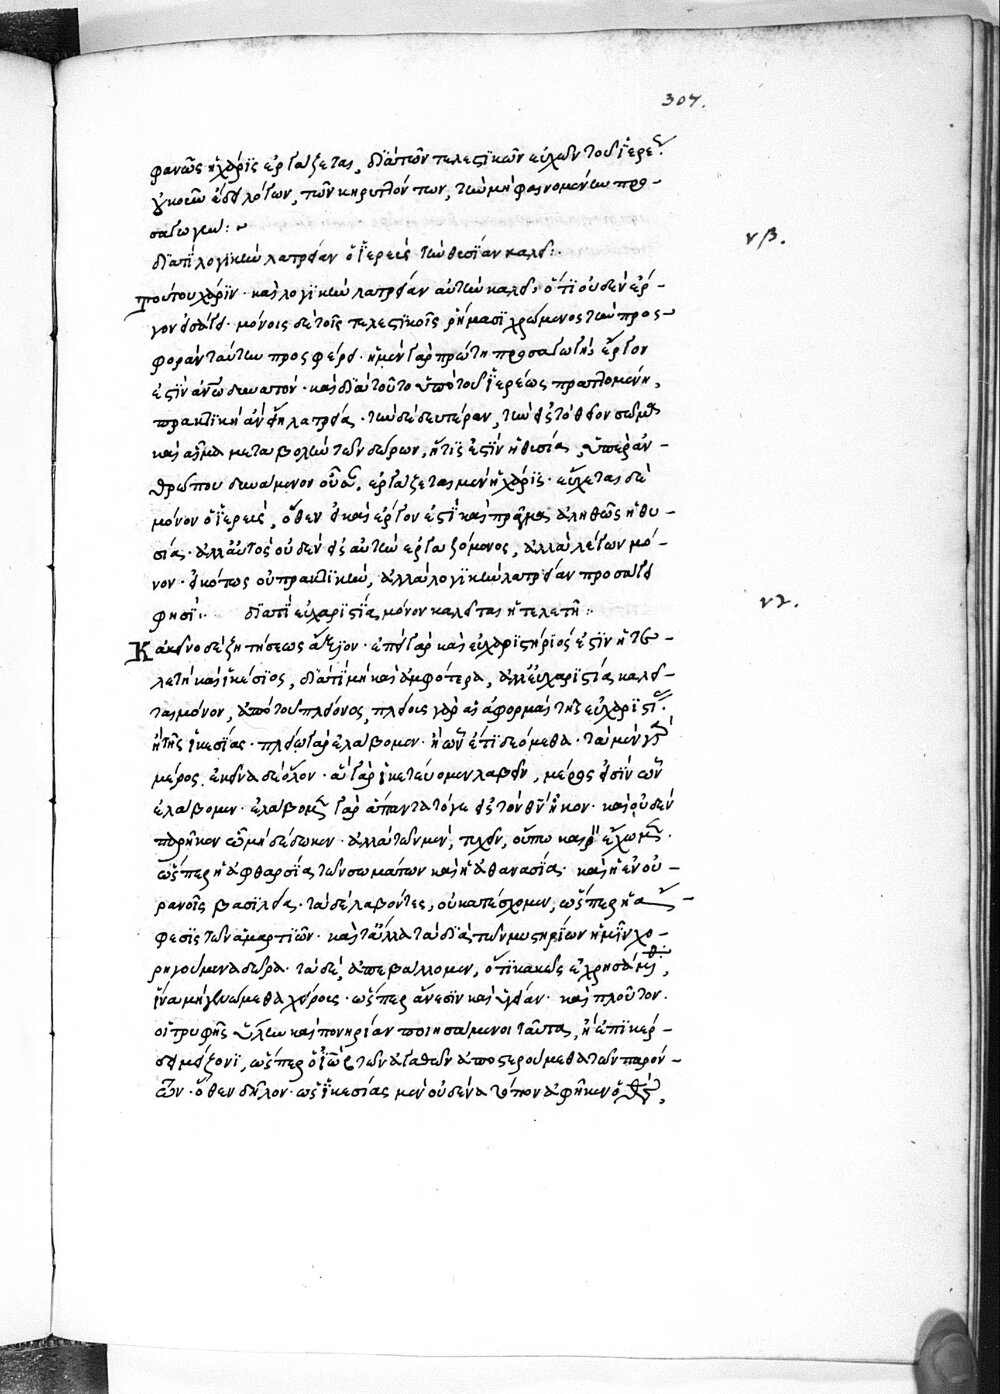 307.
φανῶς ἡ χάρις ἐργάζεται, διὰ τῶν τελεστικῶν εὐχῶν τοῦ ἱερέ
σαγωγήν :~
νβ.
διατί λογικὴν λατρείαν ὁ ἱερεὺς τὴν θυσίαν καλεῖ :
τούτου χάριν καὶ λογικὴν λατρείαν αὐτὴν καλεῖ, ὅτι οὐδὲν ἔρ-
γον εἰσάγει· μόνοις δὲ τοῖς τελεστικοῖς ῥήμασι χρώμενος τὴν προσ-
φορὰν ταύτην προσφέρει· ἡ μὲν γὰρ πρώτη προσαγωγὴ, ἔργον
ἐστὶν ἀνθρώπῳ δυνατόν· καὶ διὰ τοῦτο ὑπὸ τοῦ ἱερέως πραττομένη,
πρακτικὴ ἂν εἴη λατρεία· τὴν δὲ δευτέραν, τὴν εἰς τὸ θεῖον σῶμα
καὶ αἷμα μεταβολὴν τῶν δώρων, ἥτις ἐστὶν ἡ θυσία, ὑπὲρ ἀν-
θρώπου δυνάμενον οὖσαν, ἐργάζεται μὲν ἡ χάρις· εὔχεται δὲ
μόνον ὁ ἱερεύς, ὅθεν εἰ καὶ ἔργον ἐστὶ καὶ πρᾶγμα ἀληθῶς ἡ θυ-
σία· ἀλλ' αὐτὸς οὐδὲν εἰς αὐτὴν ἐργαζόμενος, ἀλλὰ λέγων μό-
νον· εἰκότως οὐ πρακτικὴν, ἀλλὰ λογικὴν λατρείαν προσάγει
φησί :. διατί εὐχαριστία μόνον καλεῖται ἡ τελετή :
νγ.
Κἀκεῖνο δὲ ζητήσεως ἄξιον· ἐπεὶ γὰρ καὶ εὐχαριστήριός ἐστιν ἡ τε-
λετὴ καὶ ἱκέσιος, διατί μὴ καὶ ἀμφότερα, ἀλλ' εὐχαριστία καλεῖ-
ται μόνον, ἀπὸ τοῦ πλείονος, πλείους γὰρ αἱ ἀφορμαὶ τῆς εὐχαριστί
ἢ τῆς ἱκεσίας· πλείω γὰρ ἐλάβομεν· ἢ ὧν ἔτι δεόμεθα· τὰ μὲν γὰρ
μέρος ἐκεῖνα δὲ ὅλον· ἃ γὰρ ἱκετεύομεν λαβεῖν, μέρος εἰσὶν ὧν
ἐλάβομεν· ἐλάβομεν γὰρ ἅπαντα τό γε εἰς τὸν θν ἧκον· καὶ οὐδὲν
παρῆκεν ὃ μὴ δέδωκεν· ἀλλὰ τῶν μὲν, τυχεῖν, οὔπω καιρὸν ἔχομεν·
ὥσπερ ἡ ἀφθαρσία τῶν σωμάτων καὶ ἡ ἀθανασία· καὶ ἡ ἐν οὐ-
ρανοῖς βασιλεία· τὰ δὲ λαβόντες, οὐ κατέσχομεν, ὥσπερ ἡ ἄ-
φεσις τῶν ἁμαρτιῶν· καὶ τἄλλα τὰ διὰ τῶν μυστηρίων ἡμῖν χο-
ρηγούμενα δῶρα· τὰ δὲ, ἀπεβάλλομεν, ὅτι κακῶς ἐχρησάμεθα,
ἵνα μὴ γενώμεθα χείρους· ὥσπερ ἄνεσιν καὶ ὑγείαν· καὶ πλοῦτον·
οἱ τρυφῆς ὕλην καὶ πονηρίαν ποιησάμενοι ταῦτα, ἢ ἐπὶ κέρ-
δει μείζονι, ὥσπερ ὁ ἰὼβ τῶν ἀγαθῶν ἀποστερούμεθα τῶν παρόν-
των· ὅθεν δῆλον· ὡς ἱκεσίας μὲν οὐδένα τόπον ἀφῆκεν ὁ θς,